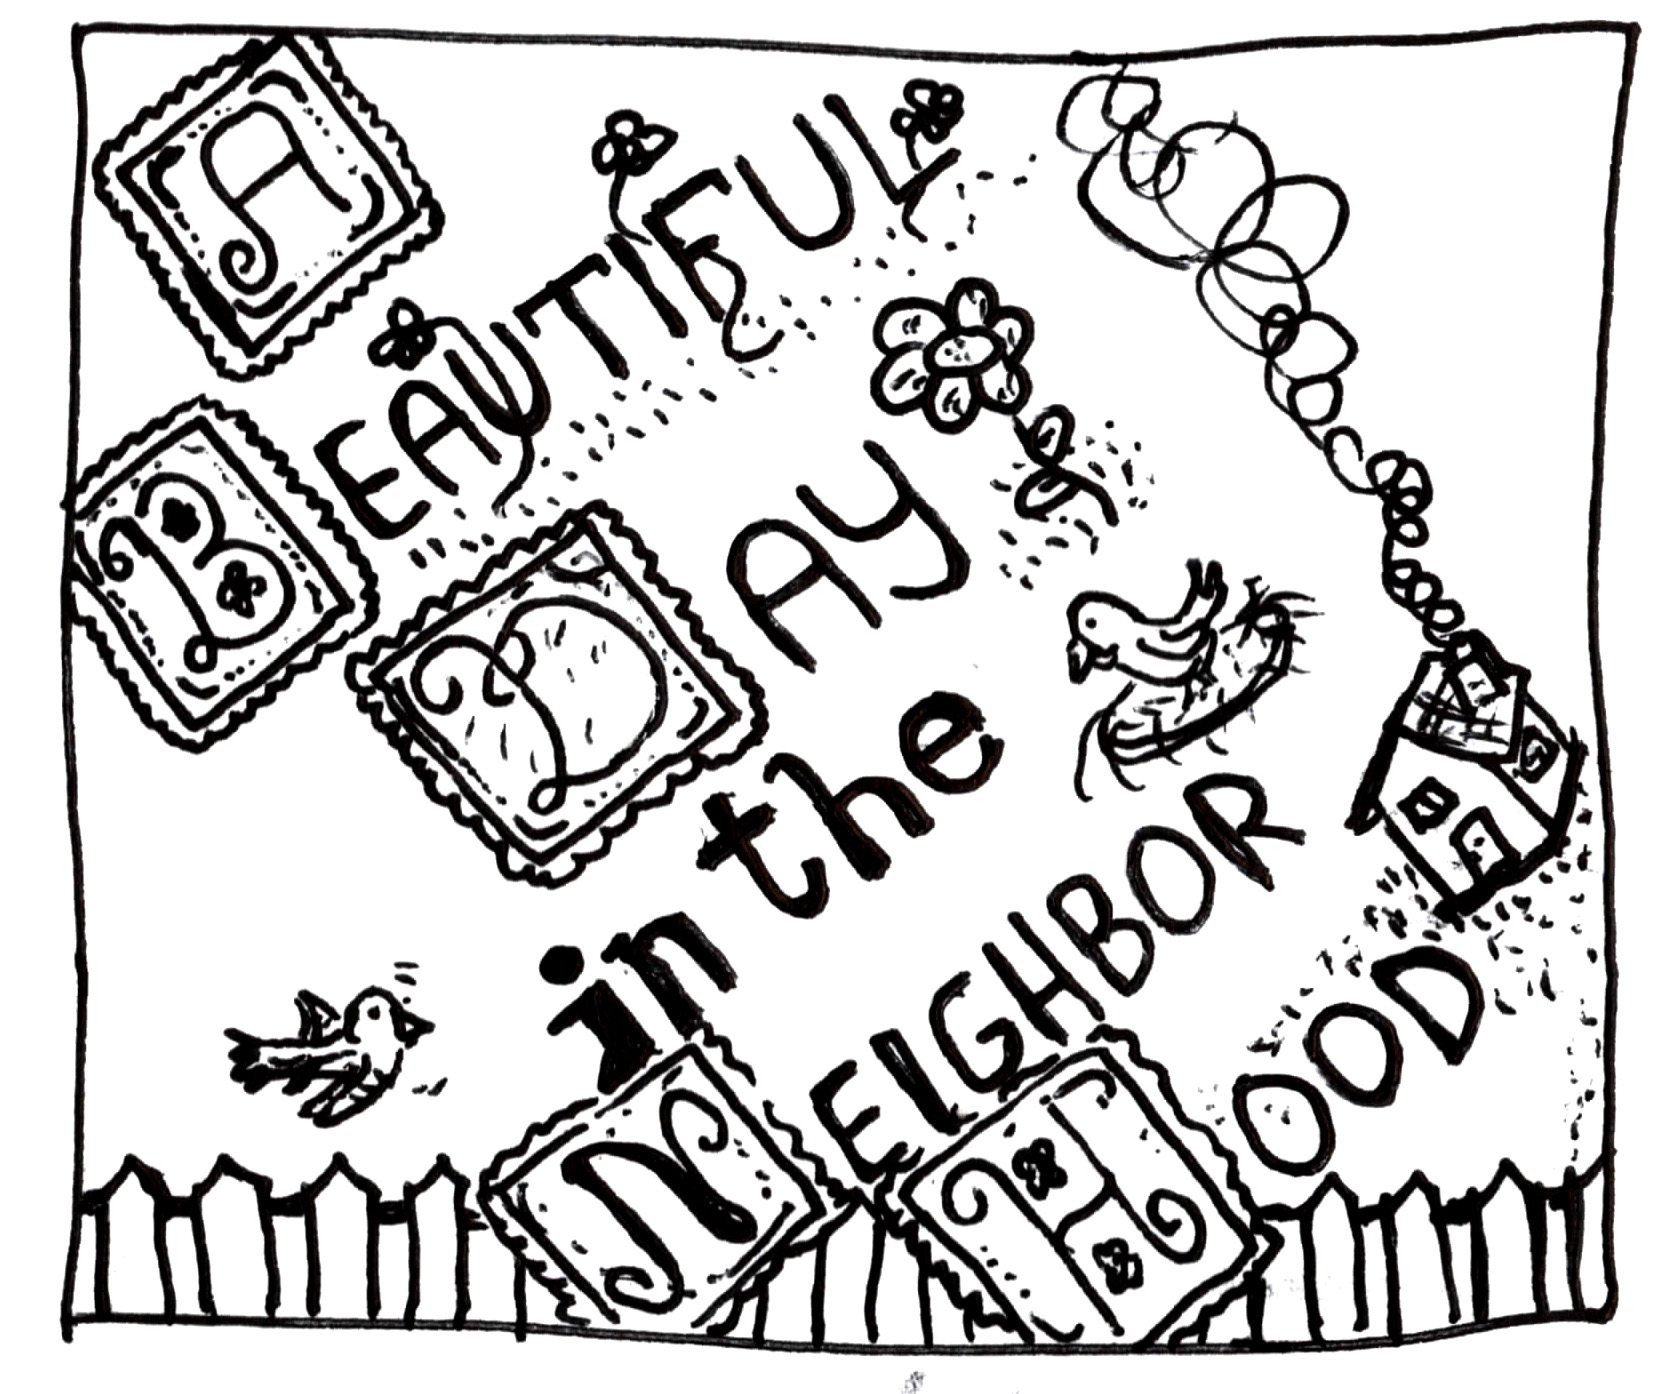 A
BEAUTIFUL
DAY
in the
NEIGHBOR
HOOD